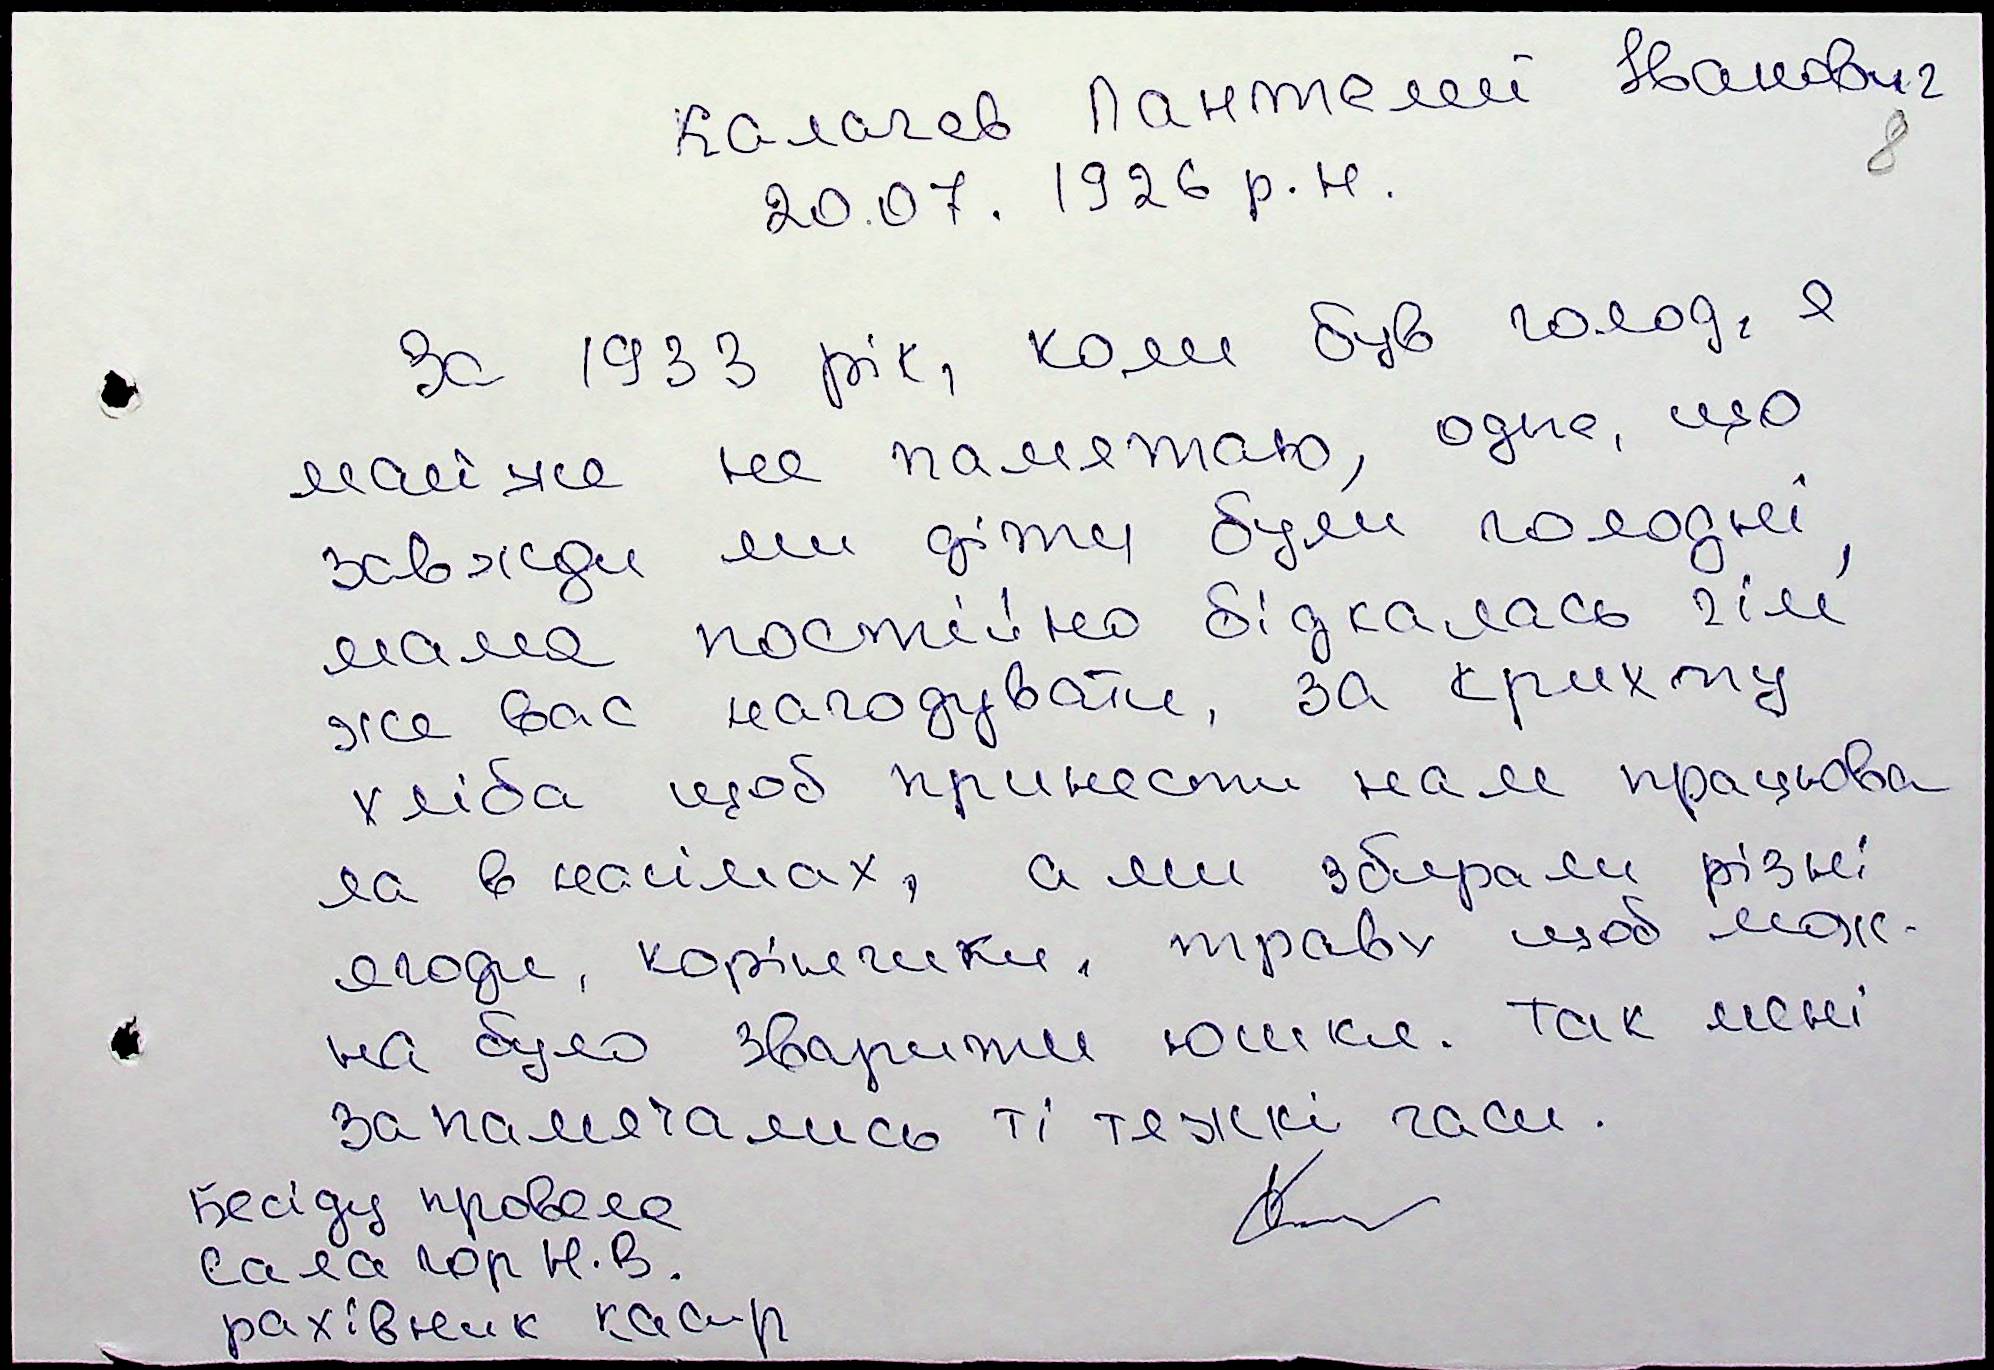 Калачев Пантелій Іванович
8
20.07.1926 р.н.
За 1933 рік, коли був голод, я
майже не памятаю, одне, що
завжди ми діти були голодні,
мама постійно бідкалась чім
же вас нагодувати, за крихту
хліба щоб принести нам працюва
ла в наймах, а ми збирали різні
ягоди, корінчики, траву щоб мож-
на було зварити юшки. Так мені
запамятались ті тяжкі часи.
Бесіду провела
Салагор Н.В.
рахівник касир